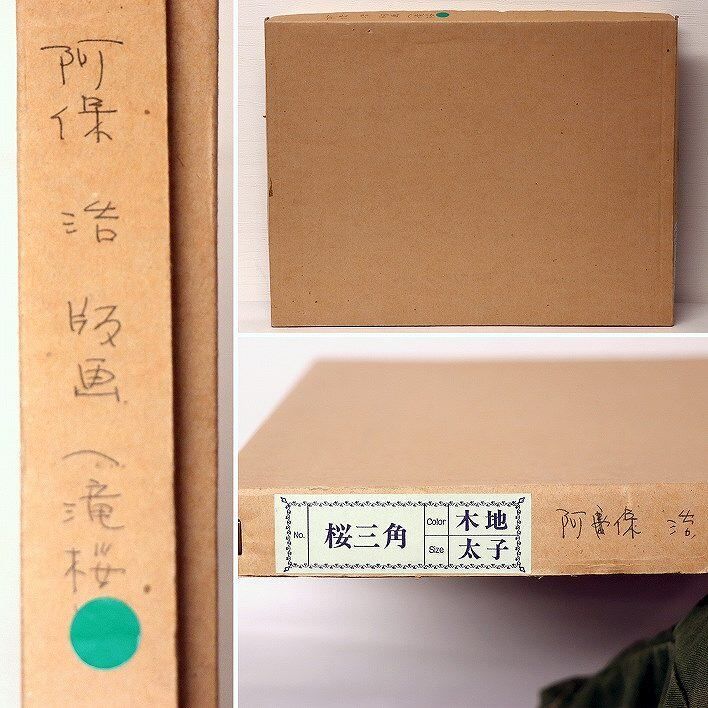 阿保 治 版画 へ滝桜
No. 桜三角
Color 木地
Size 太子
阿保 治